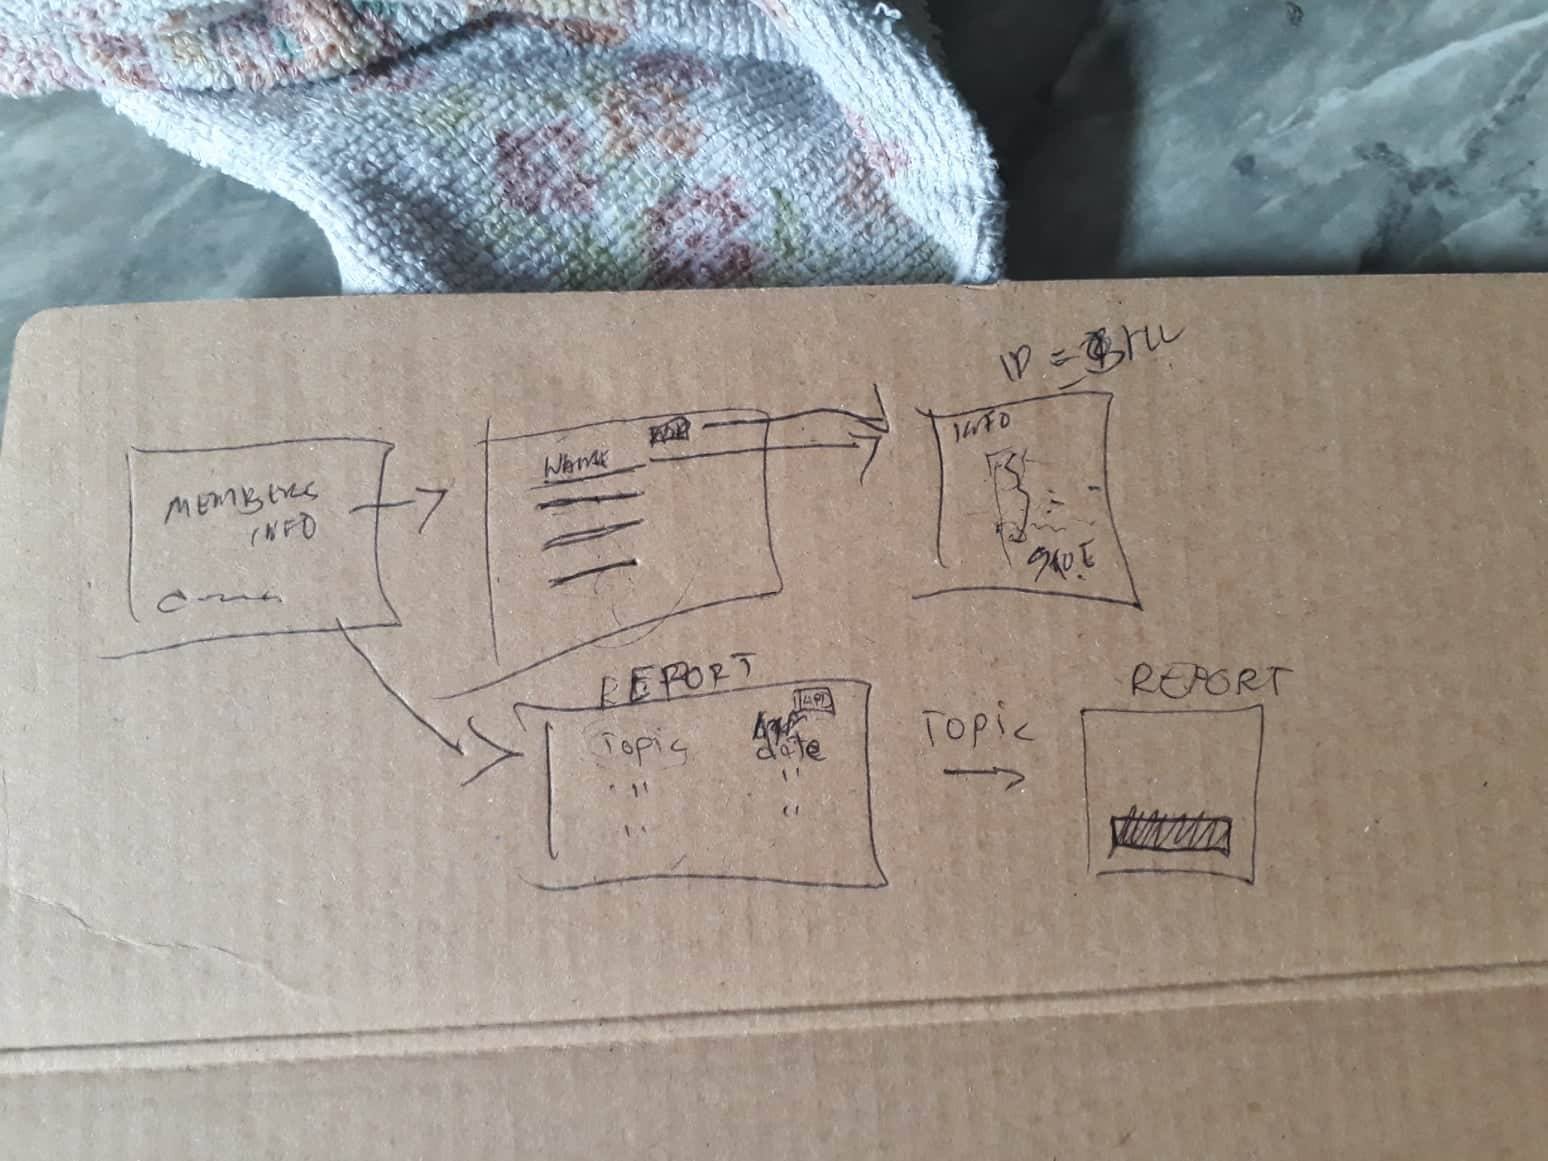 MEMBERS
INFO
NAME
INFO
REPORT
Topic
date
" "
" "
Topic
REPORT